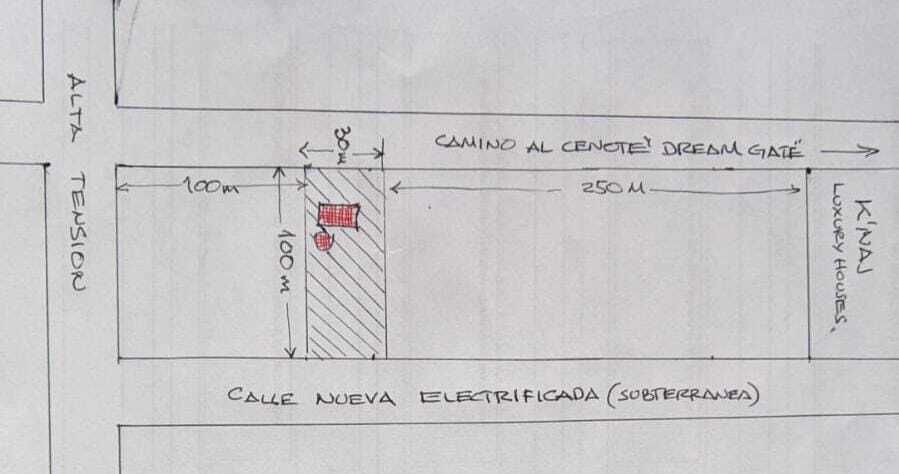 ALTA TENSION
30M
CAMINO AL CENOTE "DREAM GATE"
100m
250M
100m
K'NAJ
LUXURY HOUSES.
CALLE NUEVA ELECTRIFICADA (SUBTERRANEA)